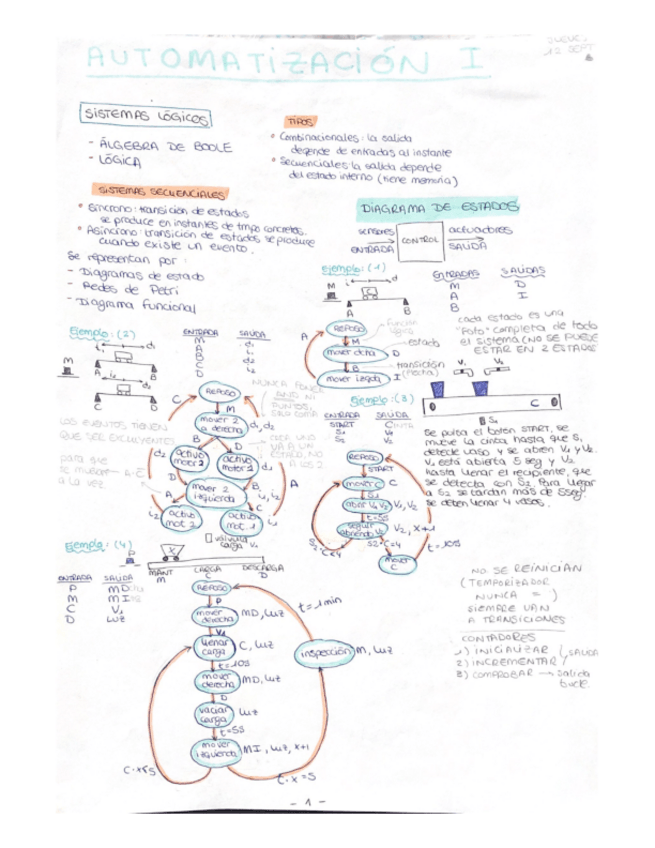 JUEVES
12 SEPT
AUTOMATIZACIÓN I
SISTEMAS LÓGICOS
- ÁLGEBRA DE BOOLE
- LÓGICA
TIPOS
• Combinacionales: la salida
depende de entradas al instante
• Secuenciales: la salida depende
del estado interno (tiene memoria)
SISTEMAS SECUENCIALES
• Síncrono: transición de estados
se produce en instantes de tmpo concretos.
• Asíncrono: transición de estados se produce
cuando existe un evento.
Se representan por:
- Diagramas de estado
- Redes de Petri
- Diagrama funcional
DIAGRAMA DE ESTADOS
sensores
ENTRADA
CONTROL
actuadores
SALIDA
Ejemplo: (1)
M
i
d
C
A
B
ENTRADAS SALIDAS
M D
A I
B
REPOSO
M
mover dcha D
B
mover izqda I
A
función
estado
transición
(flecha)
cada estado es una
"foto" completa de todo
el sistema (NO SE PUEDE
ESTAR EN 2 ESTADOS
Ejemplo: (2)
M
A
B
C
D
ENTRADA SALIDA
M d1
A i1
B d2
C i2
D
REPOSO
M
mover 2
a derecha d1, d2
B
D
activo
motor 2
activo
motor 1
d2
d1
D
B
mover 2
izquierda i1, i2
A
C
activo
mot 2
activo
mot 1
i2
i1
C
A
LOS EVENTOS TIENEN
QUE SER EXCLUYENTES
para que
se mueva
a la vez
NUNCA PONER
AND NI
Ejemplo: (3)
ENTRADA SALIDA
START CINTA
S1 V1
S2 V2
V1
V2
C
S1
REPOSO
START
mover C C
S1
abrir V1 V2 V1, V2
t=5s
seguir
abriendo V2 V2, X+1
S2·C<4
S2·C=4
mover
C
t=10s
Se pulsa el botón START, se
mueve la cinta hasta que S1
detecte vaso y se abren V1 y V2.
V1 está abierta 5 seg y V2
hasta llenar el recipiente, que
se detecta con S2. Para llenar
a S2 se tardan más de 5seg.
Se deben llenar 4 vasos.
Ejemplo: (4)
P
X
válvula
carga V1
MANT
M
CARGA
C
DESCARGA
D
ENTRADA SALIDA
P MD
M MI
C V1
D LUZ
REPOSO
P
mover
derecha MD, luz
llenar
carga C, luz
t=10s
mover
derecha MD, luz
D
vaciar
carga luz
t=5s
mover
izquierda MI, luz, x+1
C·x<5
C·x=5
inspección M, luz
t=1min
NO SE REINICIAN
(TEMPORIZADOR
NUNCA = )
SIEMPRE VAN
A TRANSICIONES
CONTADORES
1) INICIALIZAR
2) INCREMENTAR
SALIDA
3) COMPROBAR → Salida
bucle.
- 1 -